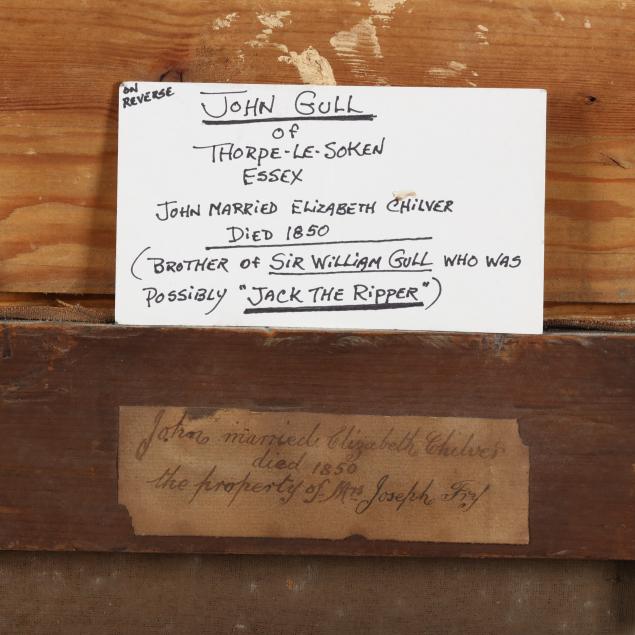 ON
REVERSE
JOHN GULL
OF
THORPE-LE-SOKEN
ESSEX
JOHN MARRIED ELIZABETH CHILVER
DIED 1850
(BROTHER OF SIR WILLIAM GULL WHO WAS
POSSIBLY "JACK THE RIPPER")
John married Elizabeth Chilver
died 1850
the property of Mrs Joseph Fry